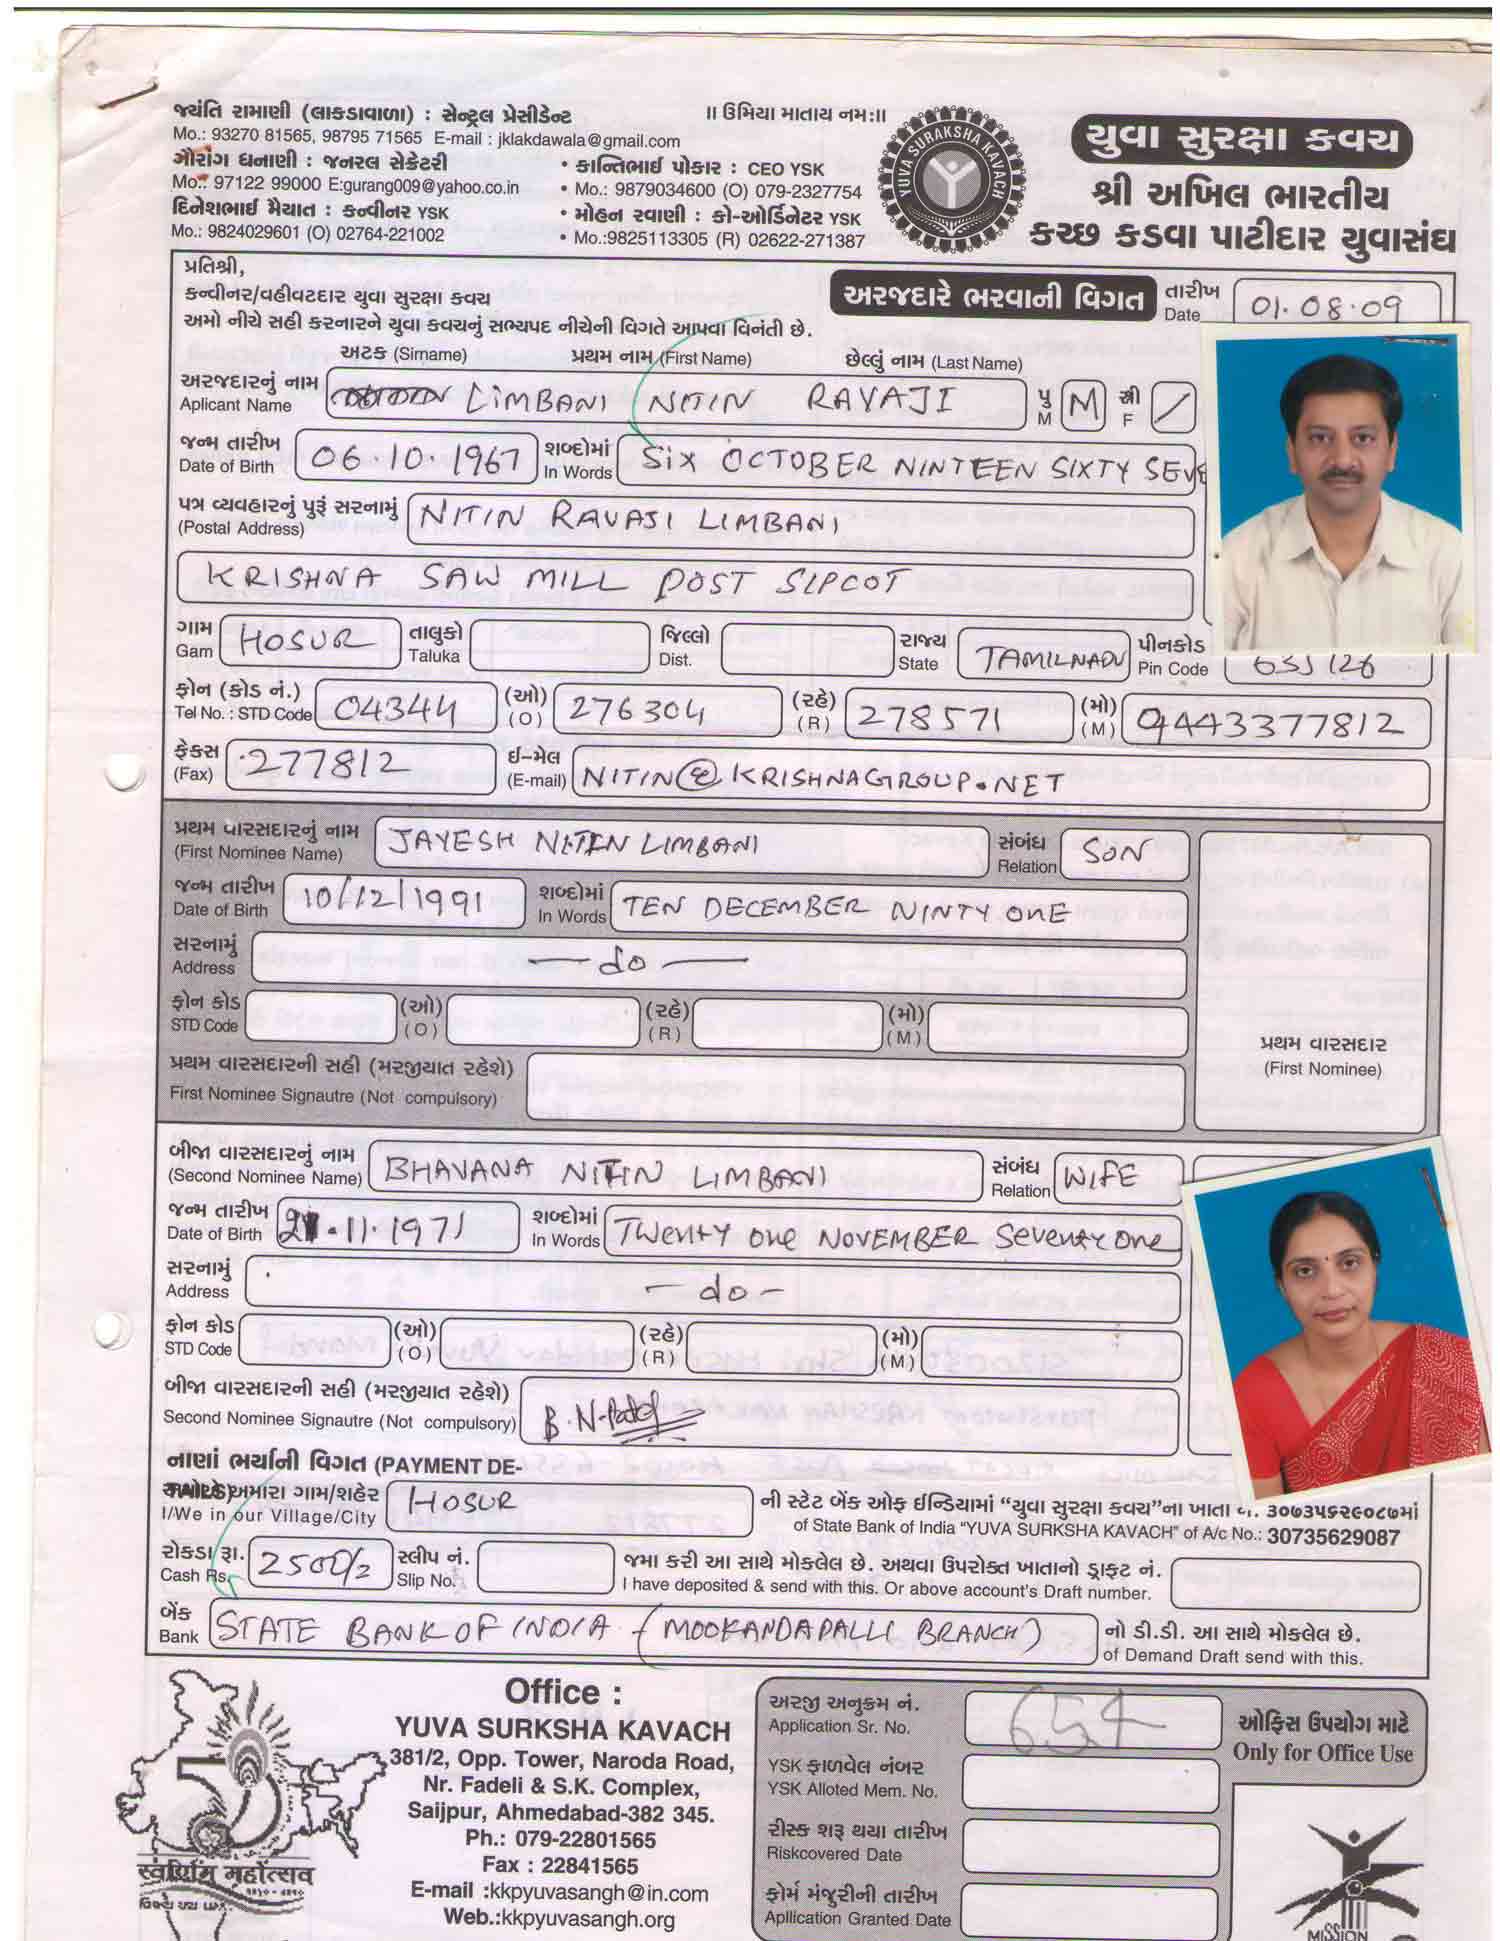 જયંતિ રામાણી (લાકડાવાળા) : સેન્ટ્રલ પ્રેસીડેન્ટ
Mo.: 93270 81565, 98795 71565 E-mail : jklakdawala@gmail.com
ગૌરાંગ ધનાણી : જનરલ સેક્રેટરી
Mo.: 97122 99000 E:gurang009@yahoo.co.in
દિનેશભાઈ મૈયાત : કન્વીનર YSK
Mo.: 9824029601 (O) 02764-221002
• કાન્તિભાઈ પોકાર : CEO YSK
• Mo.: 9879034600 (O) 079-2327754
• મોહન રવાણી : કો-ઓર્ડિનેટર YSK
• Mo.:9825113305 (R) 02622-271387
॥ ઉમિયા માતાય નમઃ॥
YUVA SURAKSHA KAVACH
યુવા સુરક્ષા કવચ
શ્રી અખિલ ભારતીય
કચ્છ કડવા પાટીદાર યુવાસંઘ
પ્રતિશ્રી,
કન્વીનર/વહીવટદાર યુવા સુરક્ષા કવચ
અમો નીચે સહી કરનારને યુવા કવચનું સભ્યપદ નીચેની વિગતે આપવા વિનંતી છે.
અરજદારે ભરવાની વિગત
તારીખ
Date 01.08.09
અટક (Sirname) પ્રથમ નામ (First Name) છેલ્લું નામ (Last Name)
અરજદારનું નામ
Aplicant Name LIMBANI NITIN RAVAJI પુ M M સ્ત્રી F /
જન્મ તારીખ
Date of Birth 06.10.1967 શબ્દોમાં In Words Six OCTOBER NINTEEN SIXTY SEVE
પત્ર વ્યવહારનું પુરૂં સરનામું
(Postal Address) NITIN RAVAJI LIMBANI
KRISHNA SAW MILL POST SIPCOT
ગામ
Gam HOSUR તાલુકો Taluka જિલ્લો Dist. રાજ્ય State TAMILNADU પીનકોડ Pin Code 635126
ફોન (કોડ નં.)
Tel No. : STD Code 04344 (ઓ) (O) 276304 (રહે) (R) 278571 (મો) (M) 9443377812
ફેક્સ
(Fax) 277812 ઈ-મેલ (E-mail) NITIN@KRISHNAGROUP.NET
પ્રથમ વારસદારનું નામ
(First Nominee Name) JAYESH NITIN LIMBANI સંબંધ Relation SON
જન્મ તારીખ
Date of Birth 10/12/1991 શબ્દોમાં In Words TEN DECEMBER NINTY ONE
સરનામું
Address — do —
ફોન કોડ
STD Code (ઓ) (O) (રહે) (R) (મો) (M)
પ્રથમ વારસદારની સહી (મરજીયાત રહેશે)
First Nominee Signautre (Not compulsory)
પ્રથમ વારસદાર
(First Nominee)
બીજા વારસદારનું નામ
(Second Nominee Name) BHAVANA NITIN LIMBANI સંબંધ Relation WIFE
જન્મ તારીખ
Date of Birth 21.11.1971 શબ્દોમાં In Words TWenty one NOVEMBER Seventy one
સરનામું
Address — do —
ફોન કોડ
STD Code (ઓ) (O) (રહે) (R) (મો) (M)
બીજા વારસદારની સહી (મરજીયાત રહેશે)
Second Nominee Signautre (Not compulsory) B.N.Patel
નાણાં ભર્યાની વિગત (PAYMENT DE-
TAILS) અમારા ગામ/શહેર
I/We in our Village/City HOSUR ની સ્ટેટ બેંક ઓફ ઈન્ડિયામાં “યુવા સુરક્ષા કવચ”ના ખાતા નં. ૩૦૭૩૫૬૨૯૦૮૭માં
of State Bank of India “YUVA SURKSHA KAVACH” of A/c No.: 30735629087
રોકડા રૂા.
Cash Rs. 2500/= સ્લીપ નં. Slip No. જમા કરી આ સાથે મોકલેલ છે. અથવા ઉપરોક્ત ખાતાનો ડ્રાફ્ટ નં.
I have deposited & send with this. Or above account's Draft number.
બેંક
Bank STATE BANK OF INDIA - (MOOKANDAPALLI BRANCH) નો ડી.ડી. આ સાથે મોકલેલ છે.
of Demand Draft send with this.
સ્વર્ણિમ મહોત્સવ
Office :
YUVA SURKSHA KAVACH
381/2, Opp. Tower, Naroda Road,
Nr. Fadeli & S.K. Complex,
Saijpur, Ahmedabad-382 345.
Ph.: 079-22801565
Fax : 22841565
E-mail :kkpyuvasangh@in.com
Web.:kkpyuvasangh.org
અરજી અનુક્રમ નં.
Application Sr. No. 654
YSK ફાળવેલ નંબર
YSK Alloted Mem. No.
રીસ્ક શરૂ થયા તારીખ
Riskcovered Date
ફોર્મ મંજુરીની તારીખ
Apllication Granted Date
ઓફિસ ઉપયોગ માટે
Only for Office Use
MISSION